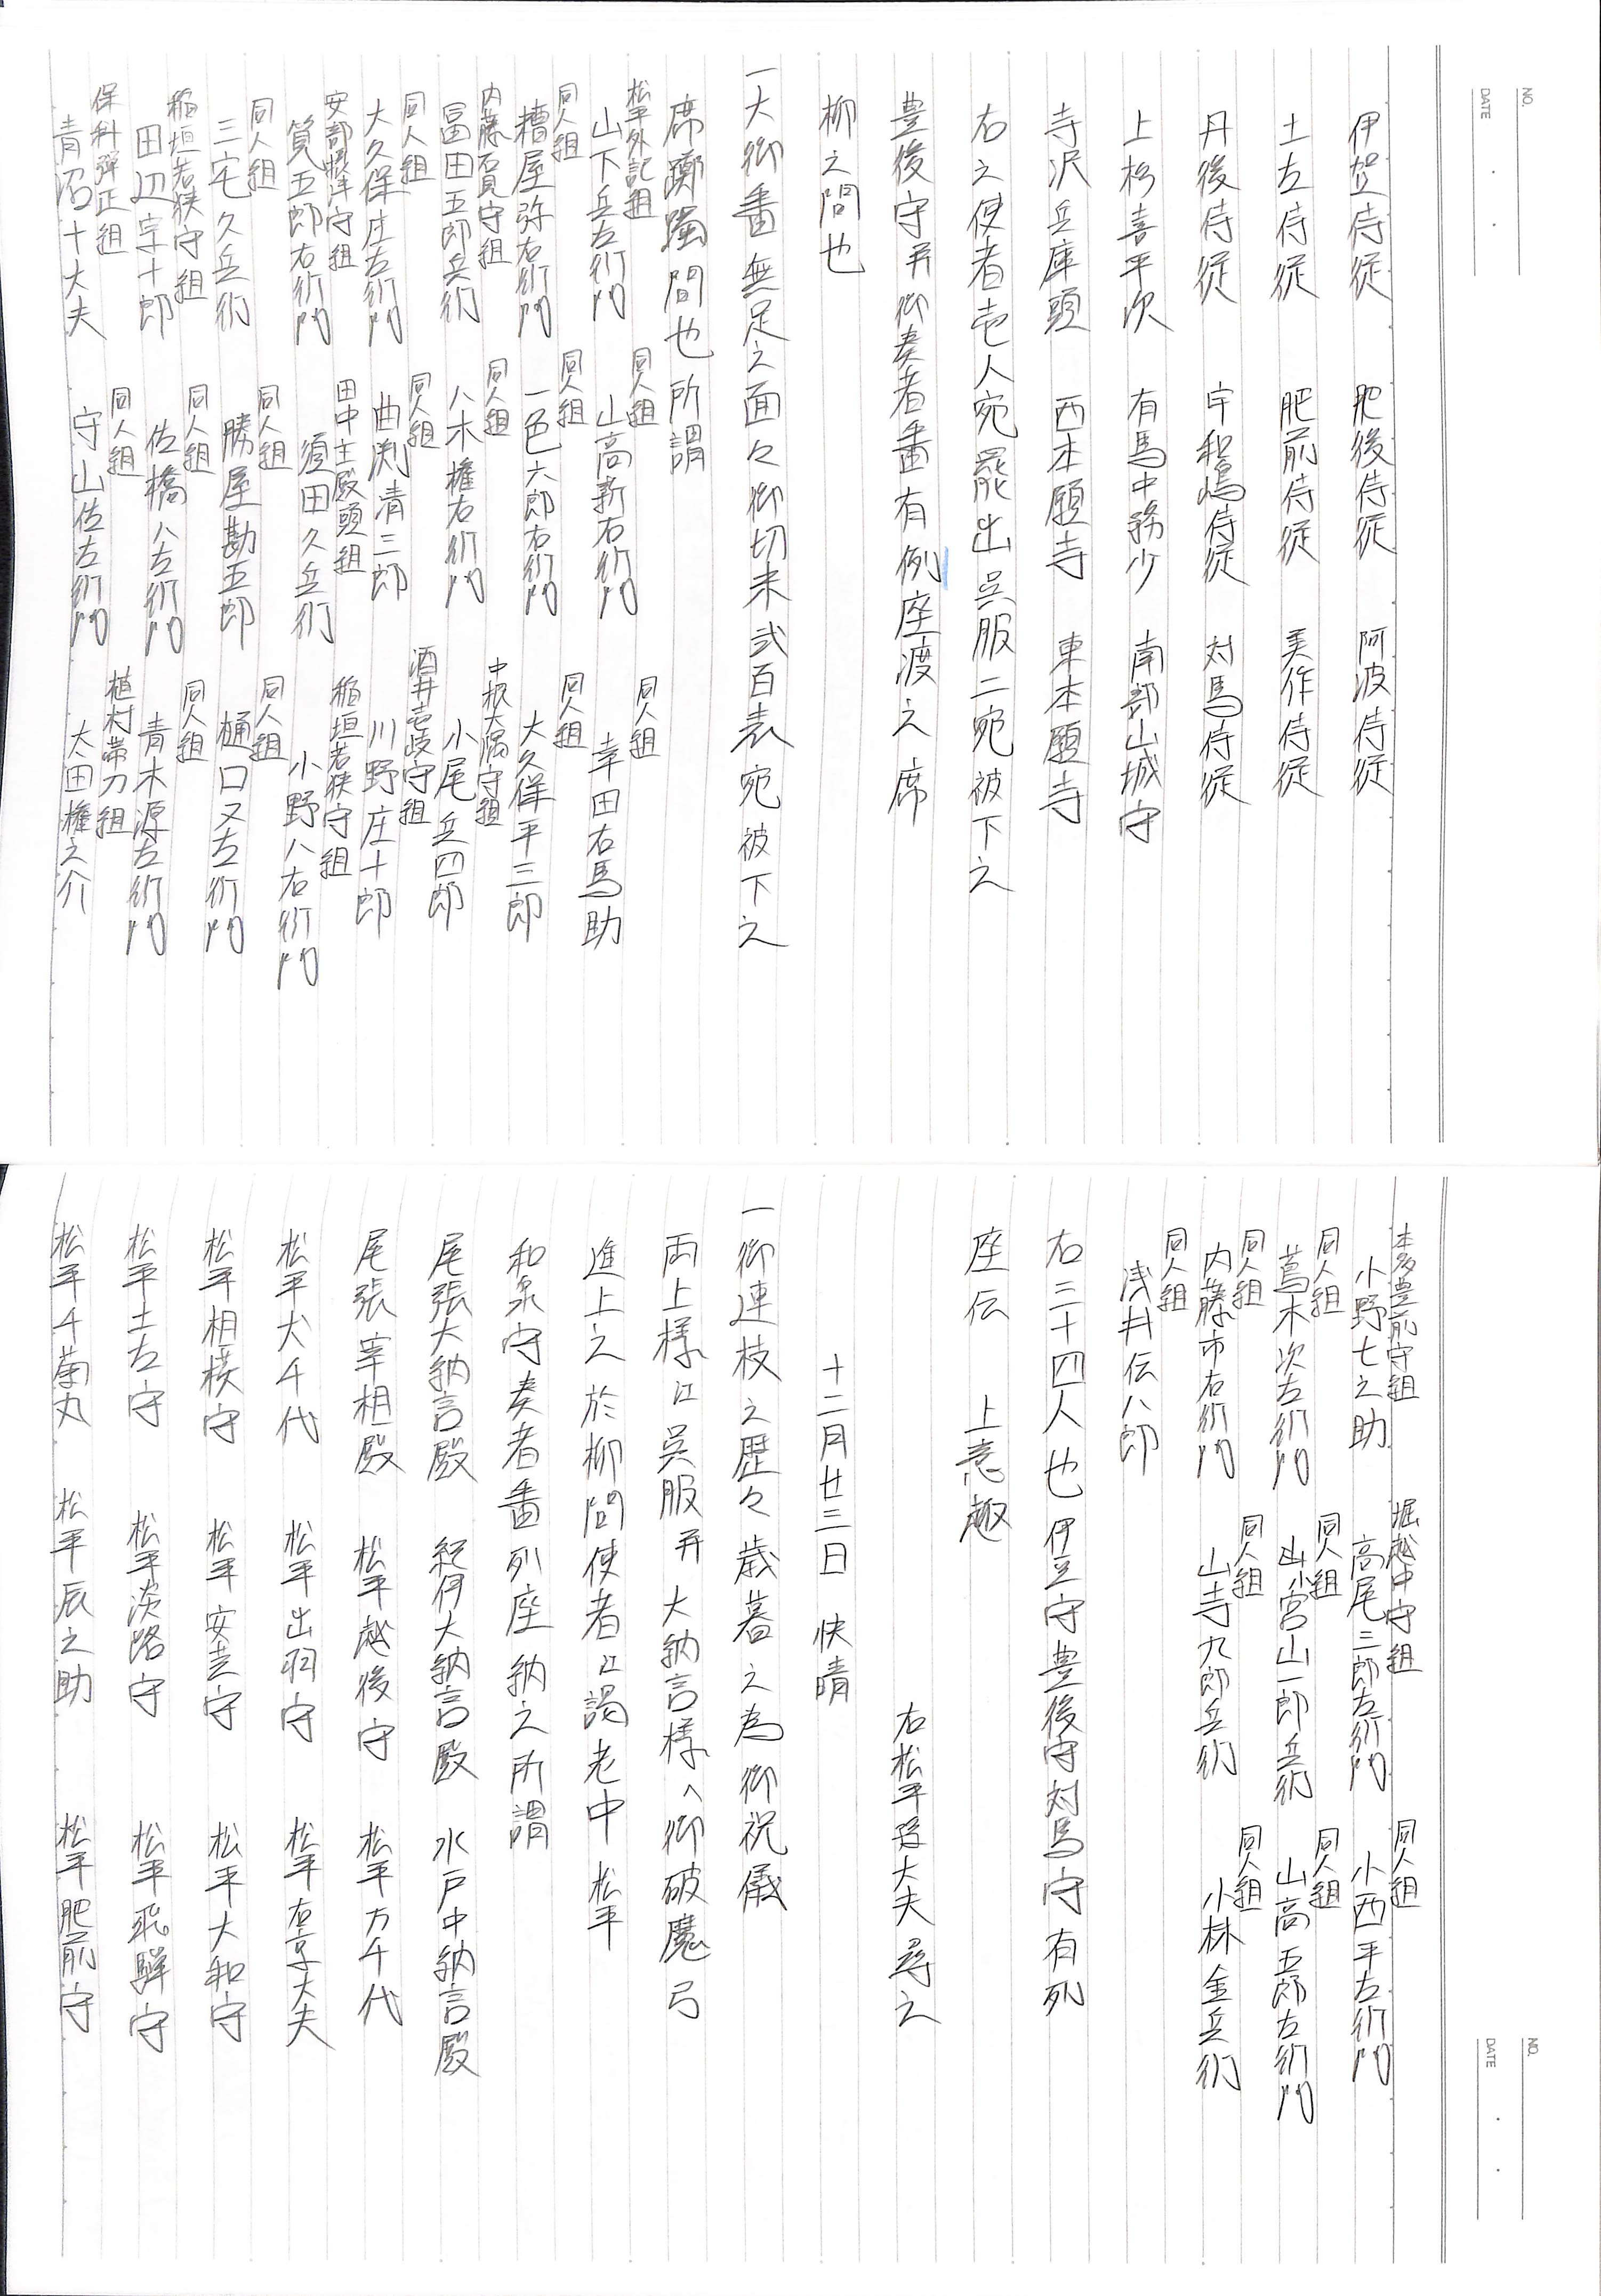 NO.
DATE
伊賀侍従 肥後侍従 阿波侍従
土左侍従 肥前侍従 美作侍従
丹後侍従 宇和嶋侍従 対馬侍従
上杉喜平次 有馬中務少 南部山城守
寺沢兵庫頭 西本願寺 東本願寺
右之使者壱人宛罷出呉服二宛被下之
豊後守并御奏者番有例座渡之席
柳之間也
一大御番無足之面々御切米弐百表宛被下之
席躑躅間也所謂
松平外記組 同人組 同人組
山下兵左衛門 山高新右衛門 幸田右馬助
同人組 同人組 同人組
糟屋弥右衛門 一色六郎右衛門 大久保平三郎
内藤石見守組 同人組 中根大隅守組
冨田五郎兵衛 八木権右衛門 小尾兵四郎
同人組 同人組 酒井壱岐守組
大久保庄左衛門 曲渕清三郎 川野庄十郎
安部摂津守組 田中主殿頭組 稲垣若狭守組
筧五郎右衛門 須田久兵衛 小野八右衛門
同人組 同人組 同人組
三宅久兵衛 勝屋勘五郎 樋口又左衛門
稲垣若狭守組 同人組 同人組
田辺宇十郎 佐橋八左衛門 青木源左衛門
保科弾正組 同人組 植村帯刀組
青沼十大夫 守山佐左衛門 太田権之介
NO.
DATE
本多豊前守組 堀越中守組 同人組
小野七之助 高尾三郎左衛門 小西平左衛門
同人組 同人組 同人組
蔦木次左衛門 小宮山一郎兵衛 山高五郎左衛門
同人組 同人組 同人組
内藤市右衛門 山寺九郎兵衛 小林金兵衛
同人組
浅井伝八郎
右三十四人也伊豆守豊後守対馬守有列
座伝 上意趣
右松平隼大夫尋之
十二月廿三日 快晴
一御連枝之歴々歳暮之為御祝儀
両上様江呉服并大納言様へ御破魔弓
進上之於柳間使者江謁老中松平
和泉守奏者番列座納之所謂
尾張大納言殿 紀伊大納言殿 水戸中納言殿
尾張宰相殿 松平越後守 松平万千代
松平犬千代 松平出羽守 松平右京大夫
松平相模守 松平安芸守 松平大和守
松平土左守 松平淡路守 松平飛騨守
松平千菊丸 松平辰之助 松平肥前守